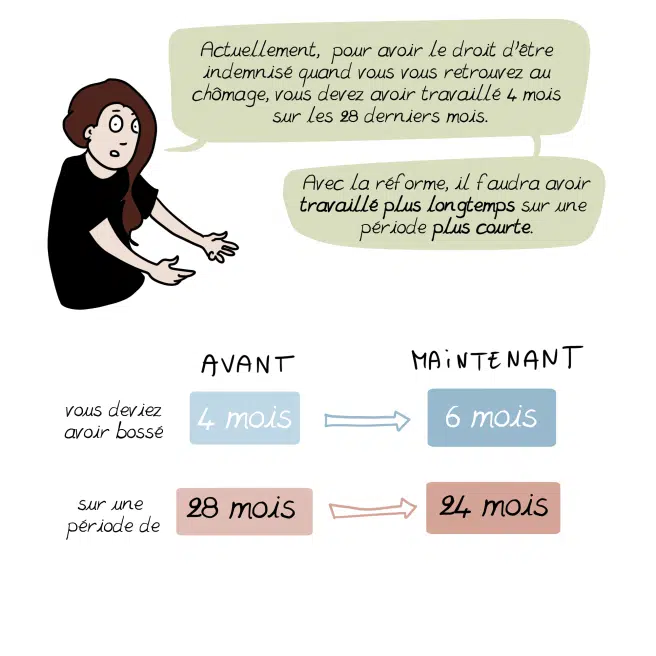 Actuellement, pour avoir le droit d'être
indemnisé quand vous vous retrouvez au
chômage, vous devez avoir travaillé 4 mois
sur les 28 derniers mois.
Avec la réforme, il faudra avoir
travaillé plus longtemps sur une
période plus courte.
AVANT
MAiNTENANT
vous deviez
avoir bossé
4 mois
6 mois
sur une
période de
28 mois
24 mois